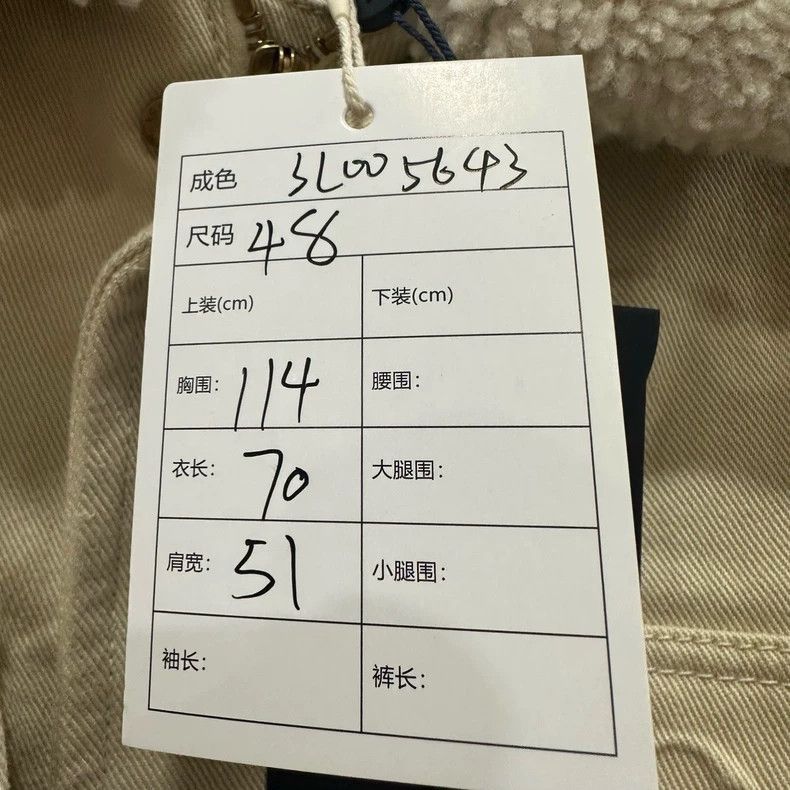 成色 3L005643
尺码 48
上装(cm) 下装(cm)
胸围: 114 腰围:
衣长: 70 大腿围:
肩宽: 51 小腿围:
袖长: 裤长: